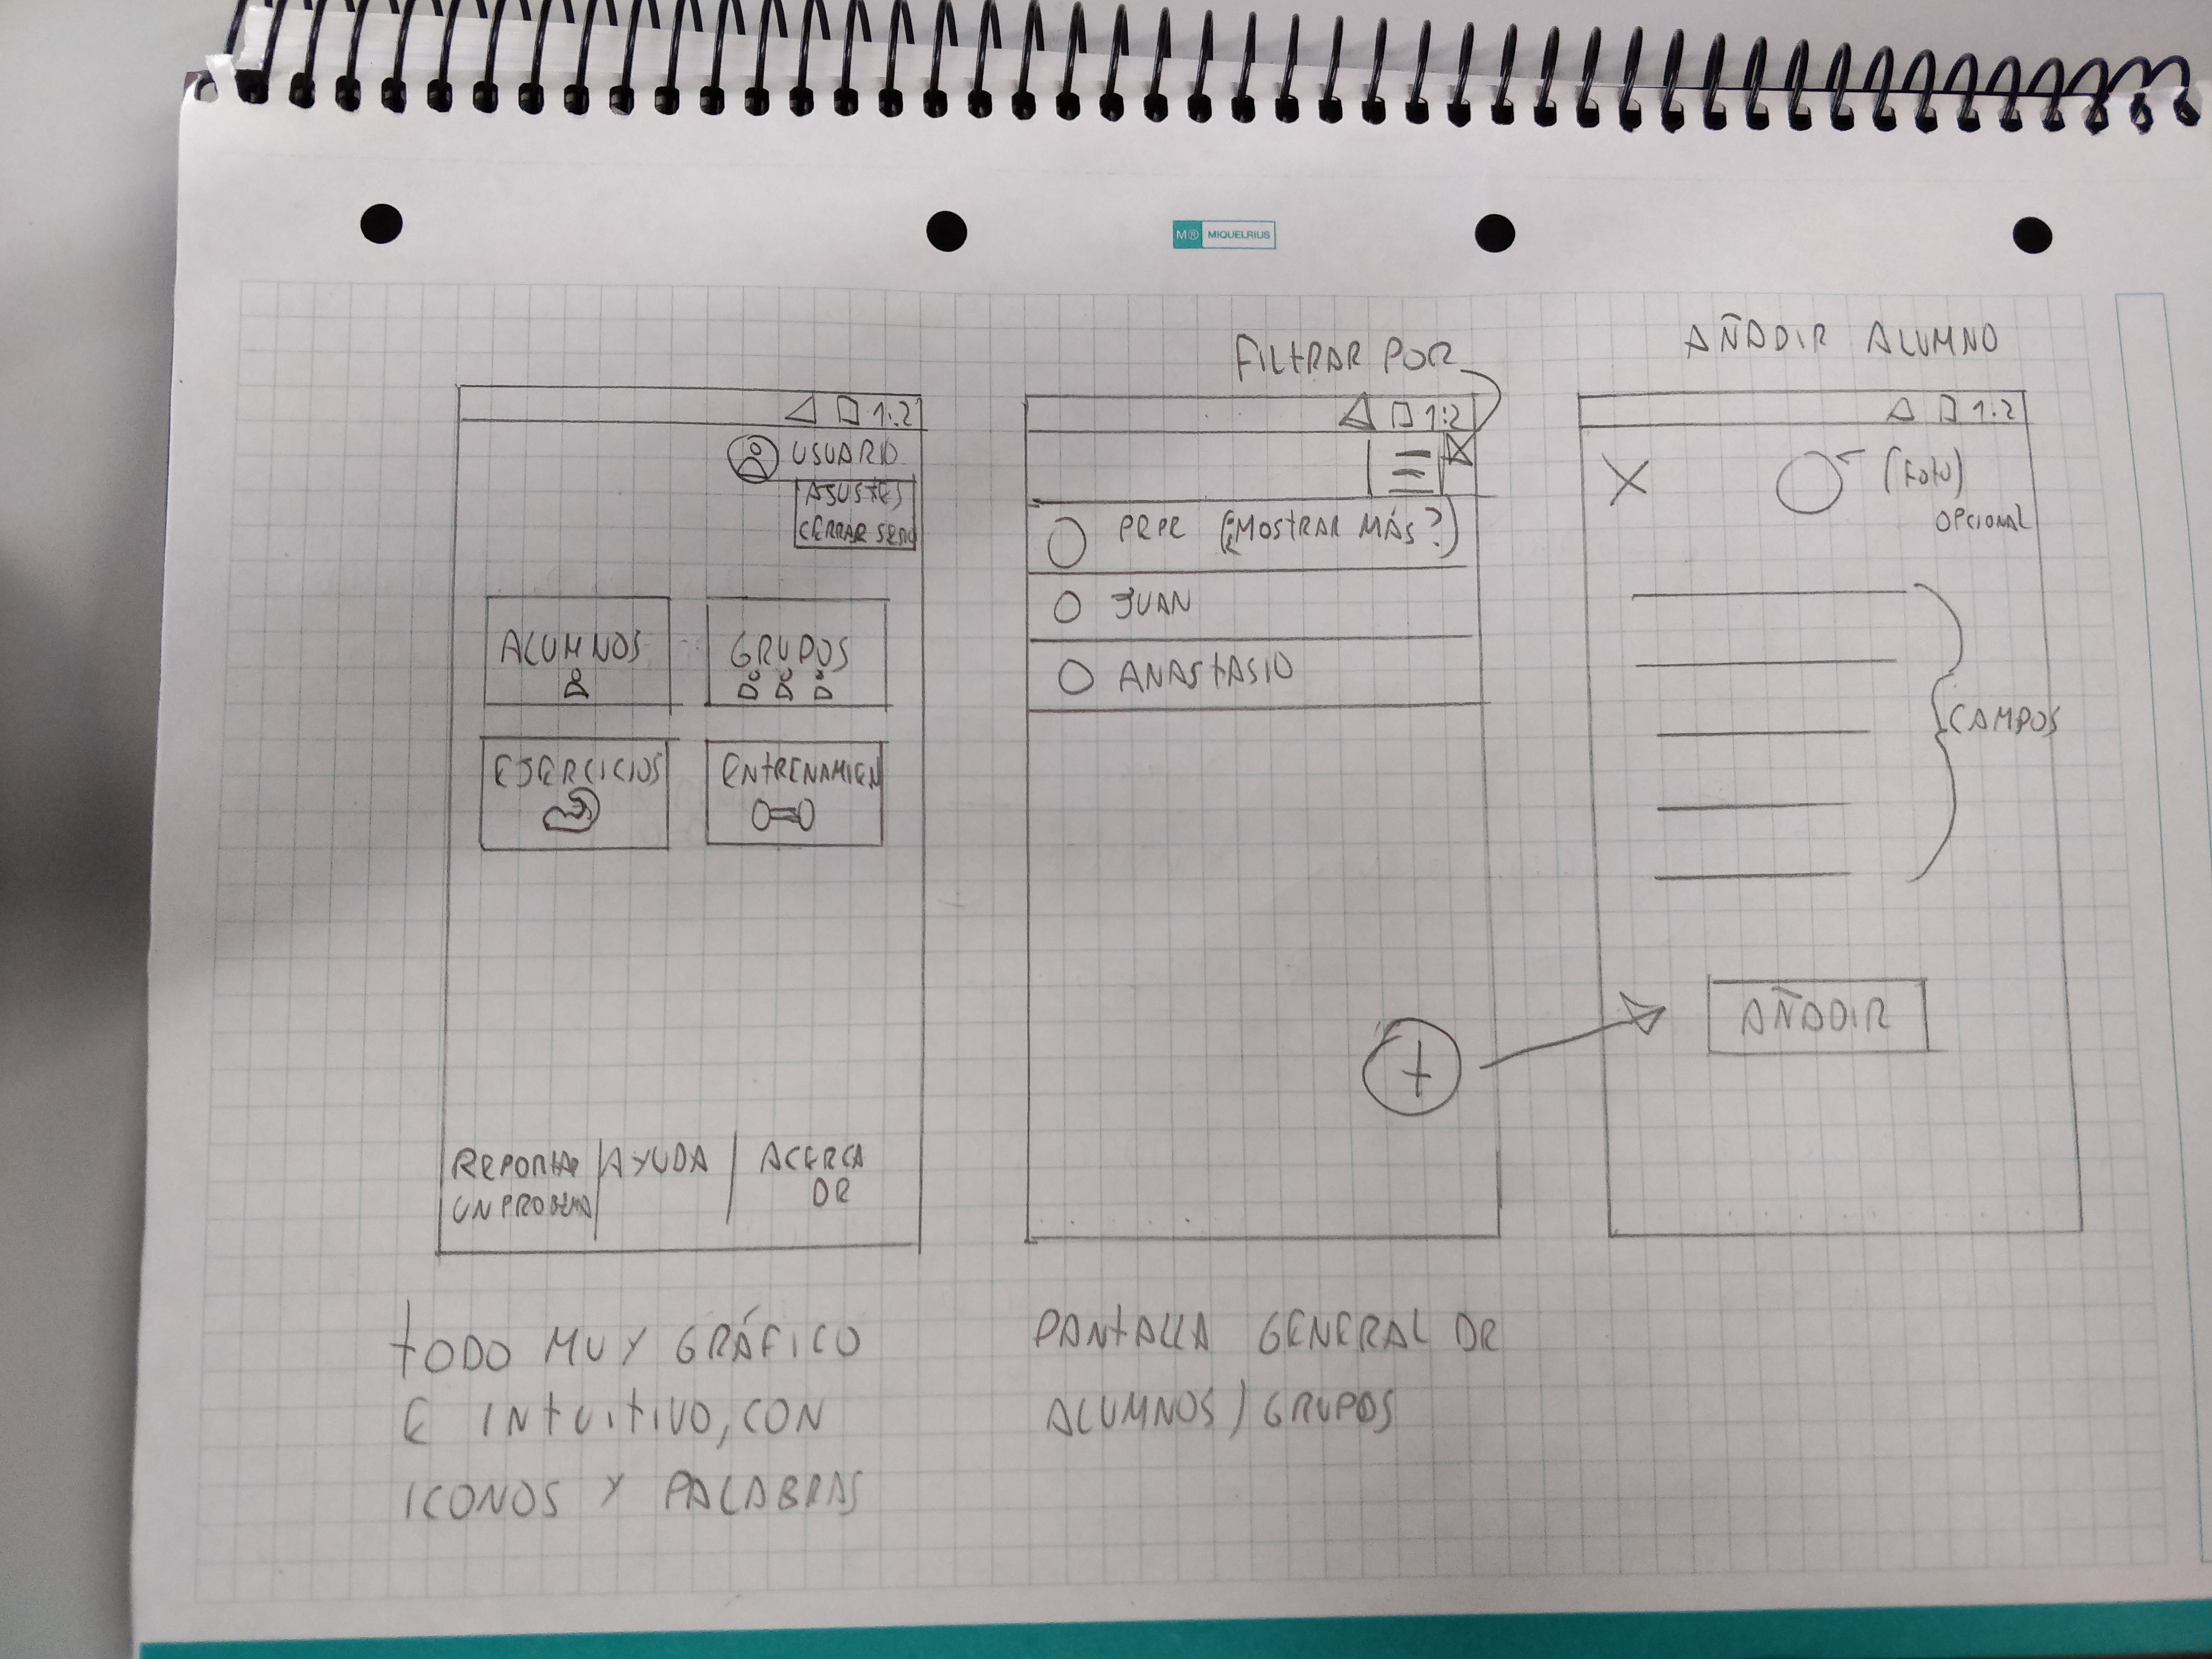 M® MIQUELRIUS
1:2
USUARIO
AJUSTES
CERRAR SESIÓ
ALUMNOS
GRUPOS
EJERCICIOS
ENTRENAMIEN
REPORTAR
UN PROBLEMA
AYUDA
ACERCA
DE
TODO MUY GRÁFICO
E INTUITIVO, CON
ICONOS Y PALABRAS
FILTRAR POR
1:2
PEPE (¿MOSTRAR MÁS?)
JUAN
ANASTASIO
+
PANTALLA GENERAL DE
ALUMNOS / GRUPOS
AÑADIR ALUMNO
1:2
X
(FOTO)
OPCIONAL
CAMPOS
AÑADIR